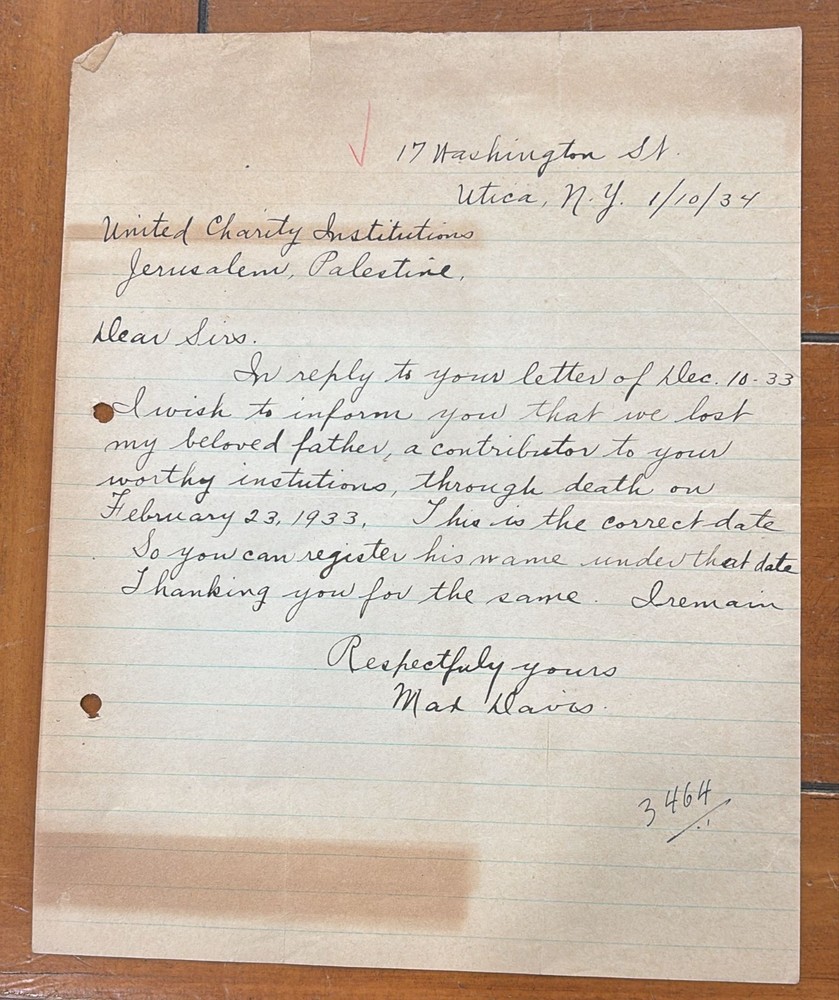 17 Washington St.
Utica, N.Y. 1/10/34
United Charity Institutions
Jerusalem, Palestine,
Dear Sirs.
In reply to your letter of Dec. 10-33
I wish to inform you that we lost
my beloved father, a contributor to your
worthy instutions, through death on
February 23, 1933. This is the correct date
So you can register his name under that date
Thanking you for the same. I remain
Respectfuly yours
Max Davis.
3464